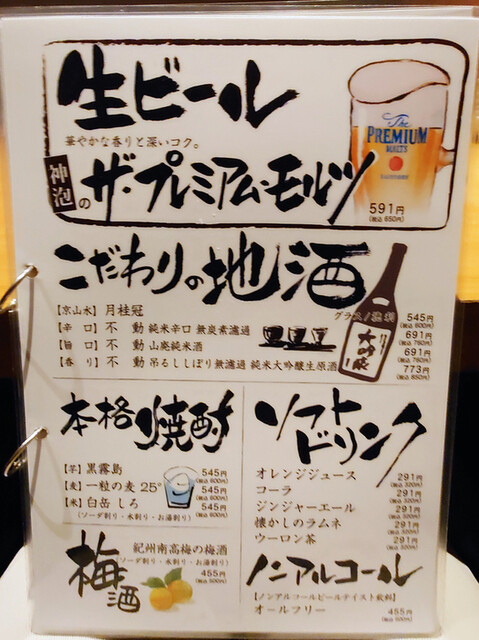 生ビール
華やかな香りと深いコク。
神泡のザ・プレミアム・モルツ
The
PREMIUM
MALT'S
SUNTORY
591円
(税込 650円)
こだわりの地酒
グラス/徳利
【京山水】月桂冠 545円
(税込 600円)
【辛 口】不 動 純米辛口 無炭素濾過 691円
(税込 760円)
【旨 口】不 動 山廃純米酒 691円
(税込 760円)
【香 り】不 動 吊るししぼり無濾過 純米大吟醸生原酒 773円
(税込 850円)
大吟醸
本格焼酎
【芋】黒霧島 545円
(税込 600円)
【麦】一粒の麦 25° 545円
(税込 600円)
【米】白岳 しろ 545円
(税込 600円)
(ソーダ割り・水割り・お湯割り)
梅酒
紀州南高梅の梅酒
(ソーダ割り・水割り・お湯割り)
455円
(税込 500円)
ソフトドリンク
オレンジジュース 291円
(税込 320円)
コーラ 291円
(税込 320円)
ジンジャーエール 291円
(税込 320円)
懐かしのラムネ 291円
(税込 320円)
ウーロン茶 291円
(税込 320円)
ノンアルコール
【ノンアルコールビールテイスト飲料】
オールフリー 455円
(税込 500円)